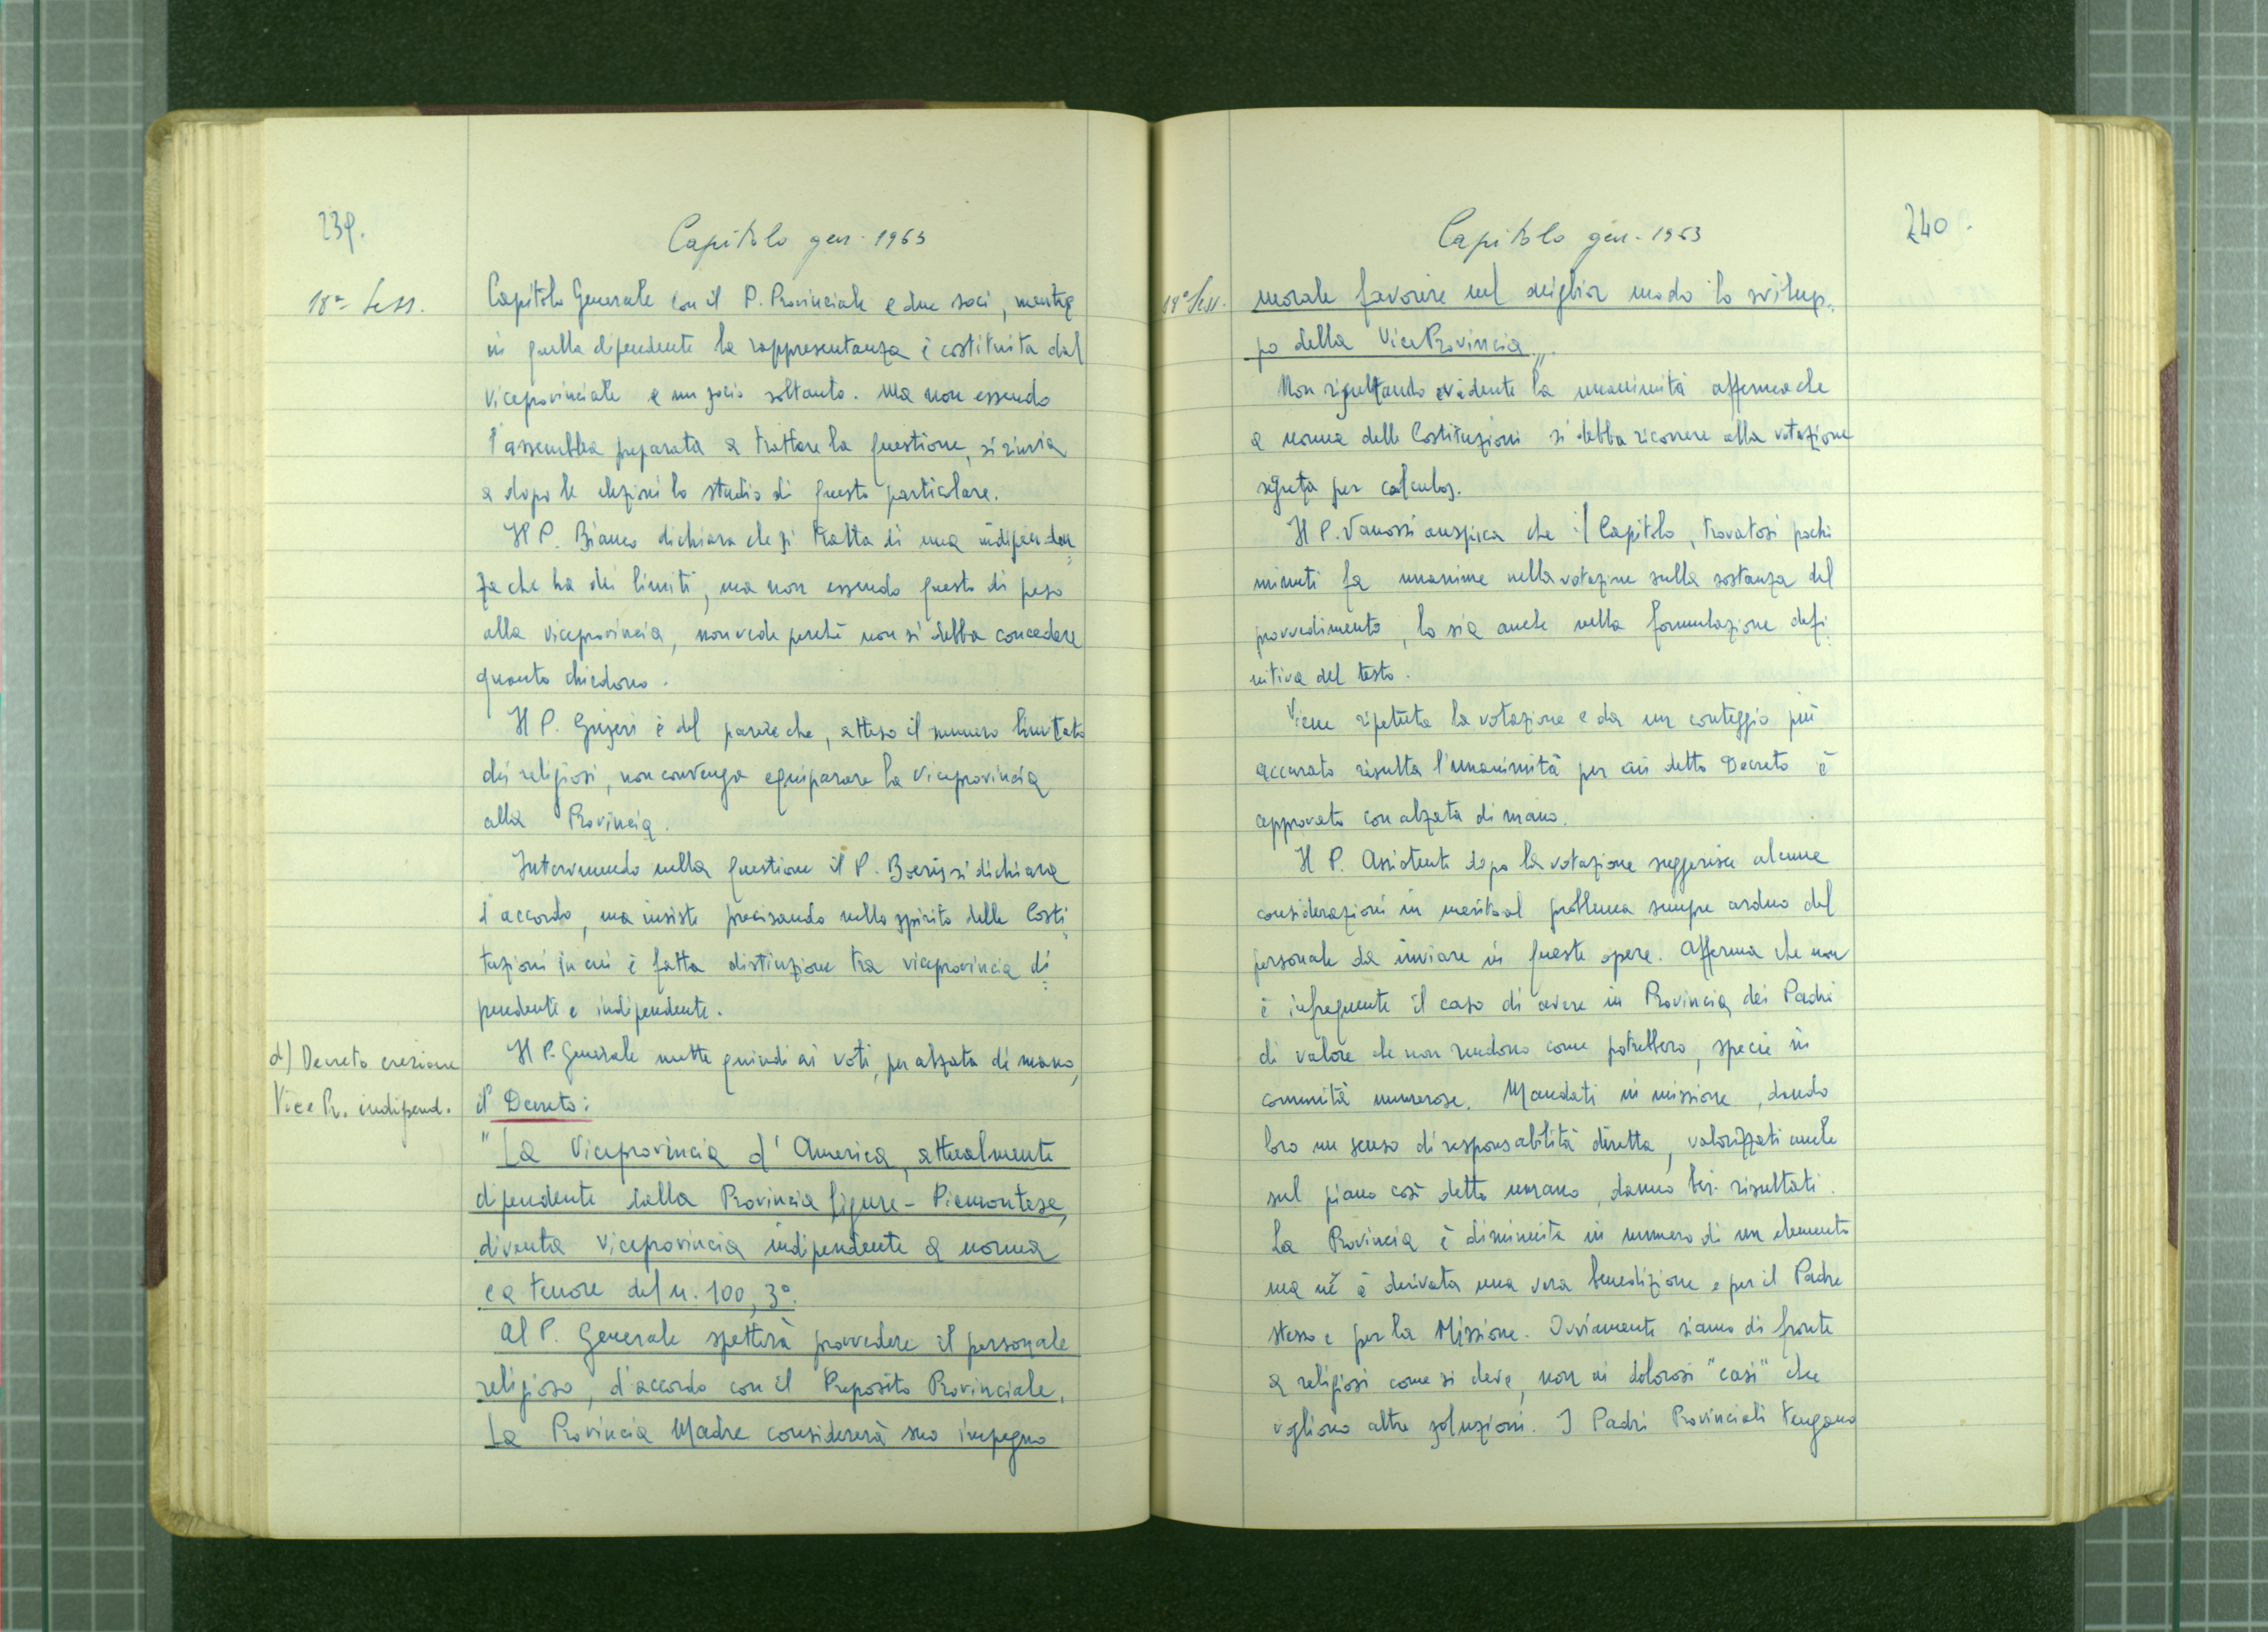 239.
Capitolo gen. 1963
18ª Sess.
Capitolo Generale con il P. Provinciale e due soci, mentre
in quella dipendente la rappresentanza è costituita dal
viceprovinciale e un socio soltanto. Ma non essendo
l'assemblea preparata a trattare la questione, si rinvia
a dopo le elezioni lo studio di questo particolare.
Il P. Bianco dichiara che si tratta di una indipenden=
za che ha dei limiti, ma non essendo questo di peso
alla viceprovincia, non vede perché non si debba concedere
quanto chiedono.
Il P. è del parere che, atteso il numero limitato
dei religiosi, non convenga equiparare la viceprovincia
alla Provincia.
Intervenendo nella questione il P. Boeris si dichiara
d'accordo, ma insiste precisando nello spirito delle Costi=
tuzioni in cui è fatta distinzione tra viceprovincia di=
pendente e indipendente.
d) Decreto erezione
Vice Pr. indipend.
Il P. Generale mette quindi ai voti, per alzata di mano,
il Decreto:
"La Viceprovincia d'America, attualmente
dipendente dalla Provincia Ligure-Piemontese,
diventa Viceprovincia indipendente a norma
e a tenore del n. 100, 3º.
Al P. Generale spetterà provvedere il personale
religioso, d'accordo con il Preposito Provinciale.
La Provincia Madre considererà suo impegno
240.
Capitolo gen. 1963
18ª Sess.
morale favorire nel miglior modo lo svilup=
po della Vice Provincia".
Non risultando evidente la unanimità afferma che
a norma delle Costituzioni si debba ricorrere alla votazione
segreta per calculos.
Il P. Vanossi auspica che il Capitolo, trovatosi pochi
minuti fa unanime nella votazione sulla sostanza del
provvedimento, lo sia anche nella formulazione defi=
nitiva del testo.
Viene ripetuta la votazione e da un conteggio più
accurato risulta l'unanimità per cui detto Decreto è
approvato con alzata di mano.
Il P. Assistente dopo la votazione suggerisce alcune
considerazioni in merito al problema sempre arduo del
personale da inviare in queste opere. Afferma che non
è infrequente il caso di avere in Provincia dei Padri
di valore che non rendono come potrebbero, specie in
comunità numerose. Mandati in missione, dando
loro un senso di responsabilità diretta, valorizzati anche
sul piano così detto umano, danno bei risultati.
La Provincia è diminuita in numero di un elemento
ma ne è derivata una vera benedizione e per il Padre
stesso e per la Missione. Ovviamente siamo di fronte
a religiosi come si deve, non ai dolorosi "casi" che
vogliono altre soluzioni. I Padri Provinciali tengano